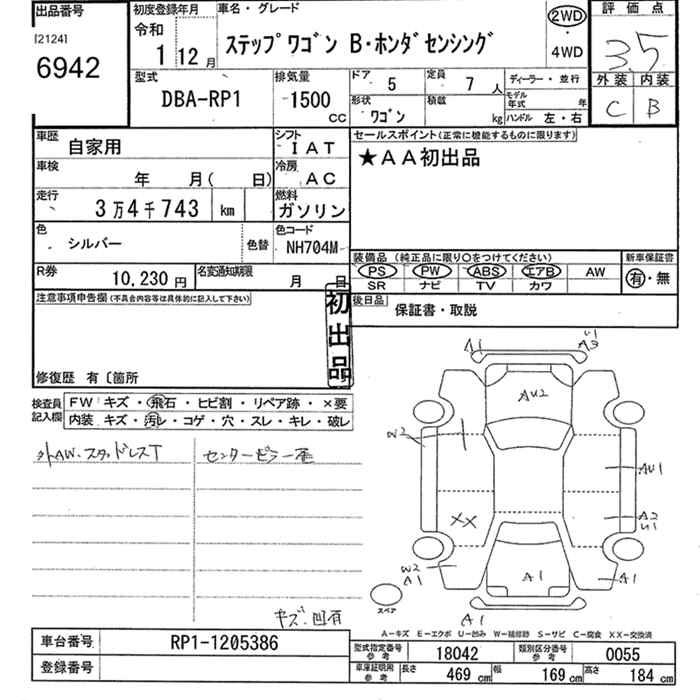 出品番号
[2124]
6942
初度登録年月
令和
1 12月
車名・グレード
ステップワゴン B・ホンダセンシング
2WD
・
4WD
評価点
3.5
外装 内装
C B
型式
DBA-RP1
排気量
1500
CC
ドア
5
定員
7人
ディーラー・並行
形状
ワゴン
積載
kg
モデル年式
年
ハンドル 左・右
車歴
自家用
シフト
IAT
車検
年 月( 日)
冷房
AC
走行
3万4千743 km
燃料
ガソリン
色
シルバー
色替
色コード
NH704M
セールスポイント(正常に機能するものに限ります)
★AA初出品
R券
10,230円
名変通知期限
月 日
装備品 (純正品に限り○をつけてください)
PS PW ABS エアB AW
SR ナビ TV カワ
新車保証書
有・無
注意事項申告欄(不具合内容等は具体的に記入して下さい)
初出品
後日品
保証書・取説
修復歴 有〔箇所
検査員記入欄
FW キズ・飛石・ヒビ割・リペア跡・×要
内装 キズ・汚レ・コゲ・穴・スレ・キレ・破レ
外AW・スタッドレスT
センターピラー
キズ・凹有
A1
U1
A3
AU2
W2
AU1
A2
U1
XX
W2
A1
A1
A1
A1
スペア
A-キズ E-エクボ U-凹み W-補修跡 S-サビ C-腐食 XX-交換済
車台番号
RP1-1205386
登録番号
型式指定番号
参考
18042
類別区分番号
参考
0055
車庫証明用
参考
長さ
469cm
幅
169cm
高さ
184cm